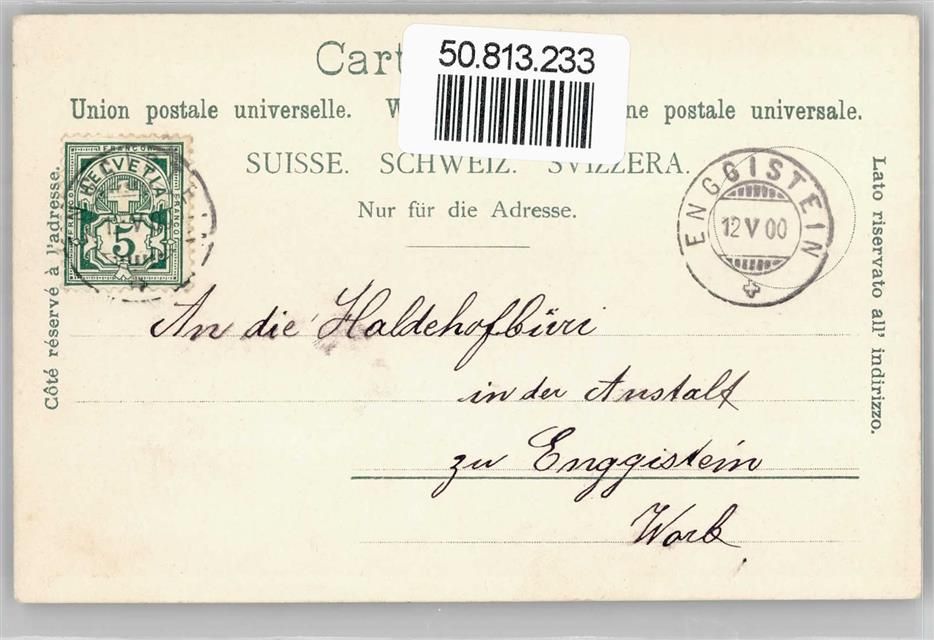 50.813.233
Cart
Union postale universelle. W ne postale universale.
SUISSE. SCHWEIZ. SVIZZERA.
Nur für die Adresse.
Côté réservé à l'adresse.
Lato riservato all' indirizzo.
FRANCO
HELVETIA
FRANCO
FRANCO
5
ENGGISTEIN
12 V 00
An die Haldehofbüri
in der Anstalt
zu Enggistein
Worb